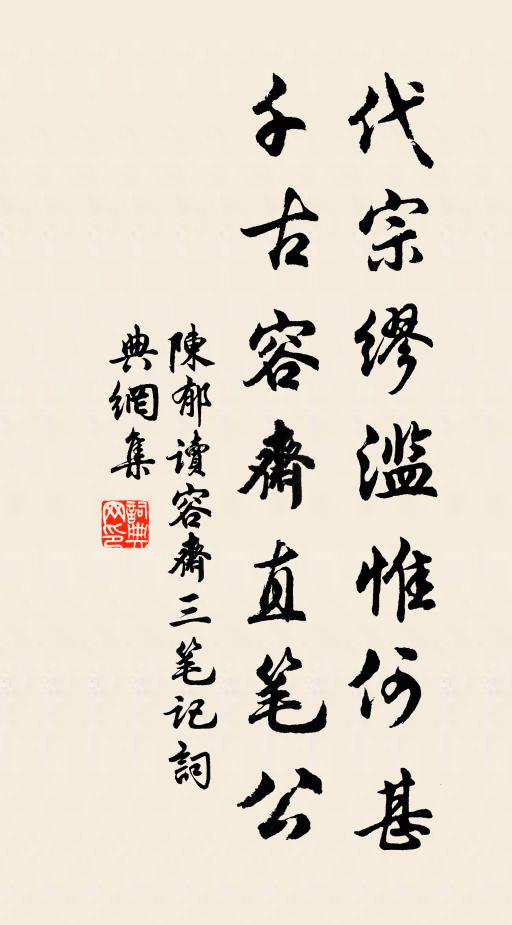 代宗繆滥惟何甚
千古容齋直笔公
陳郁读容齋三笔记詞
典網集
詞典
网印